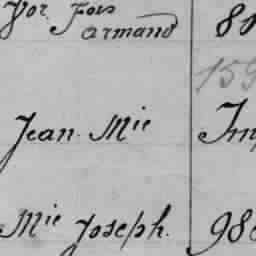 Vor Fois Armand 80
159
Jean. Mie Im
Mie Joseph. 980